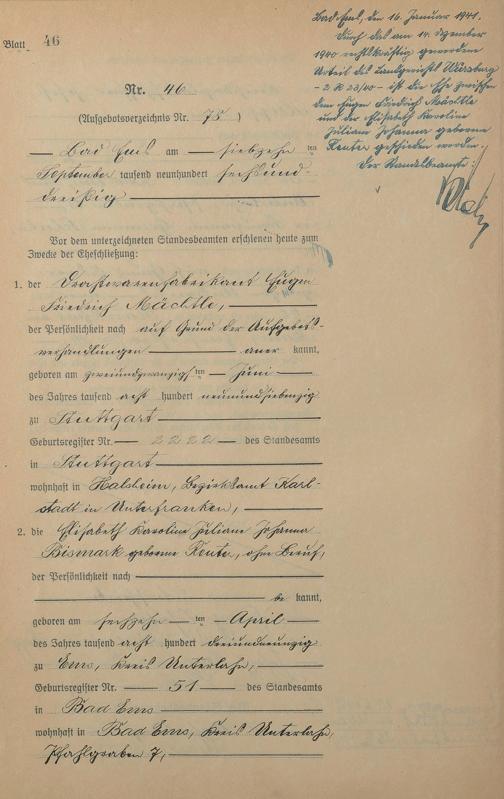 Blatt 46
Bad Ems, den 16. Januar 1941.
Durch das am 14. Dezember
1940 rechtskräftig gewordene
Urteil des Landgerichts Würzburg
- 2 R 23/40 - ist die Ehe zwischen
dem Eugen Friedrich Mächtle
und der Elisabeth Karoline
Juliane Johanna geborene
Reuter geschieden worden.
Der Standesbeamte:
Nr. 46
(Aufgebotsverzeichnis Nr. 75)
Bad Ems am siebzehn ten
September tausend neunhundert sechsund-
dreißig
Vor dem unterzeichneten Standesbeamten erschienen heute zum
Zwecke der Eheschließung:
1. der Drahtwarenfabrikant Eugen
Friedrich Mächtle,
der Persönlichkeit nach auf Grund der Aufgebots-
verhandlungen aner kannt,
geboren am zweiundzwanzigs ten Juni
des Jahres tausend acht hundert neunundsiebenzig
zu Stuttgart
Geburtsregister Nr. 2222 des Standesamts
in Stuttgart
wohnhaft in Halsheim, Bezirksamt Karl-
stadt in Unterfranken,
2. die Elisabeth Karoline Juliane Johanna
Bismark geborene Reuter, ohne Beruf,
der Persönlichkeit nach
be kannt,
geboren am sechzehn ten April
des Jahres tausend acht hundert dreiundneunzig
zu Ems, Kreis Unterlahn,
Geburtsregister Nr. 51 des Standesamts
in Bad Ems
wohnhaft in Bad Ems, Kreis Unterlahn,
Pfahlgraben 7,